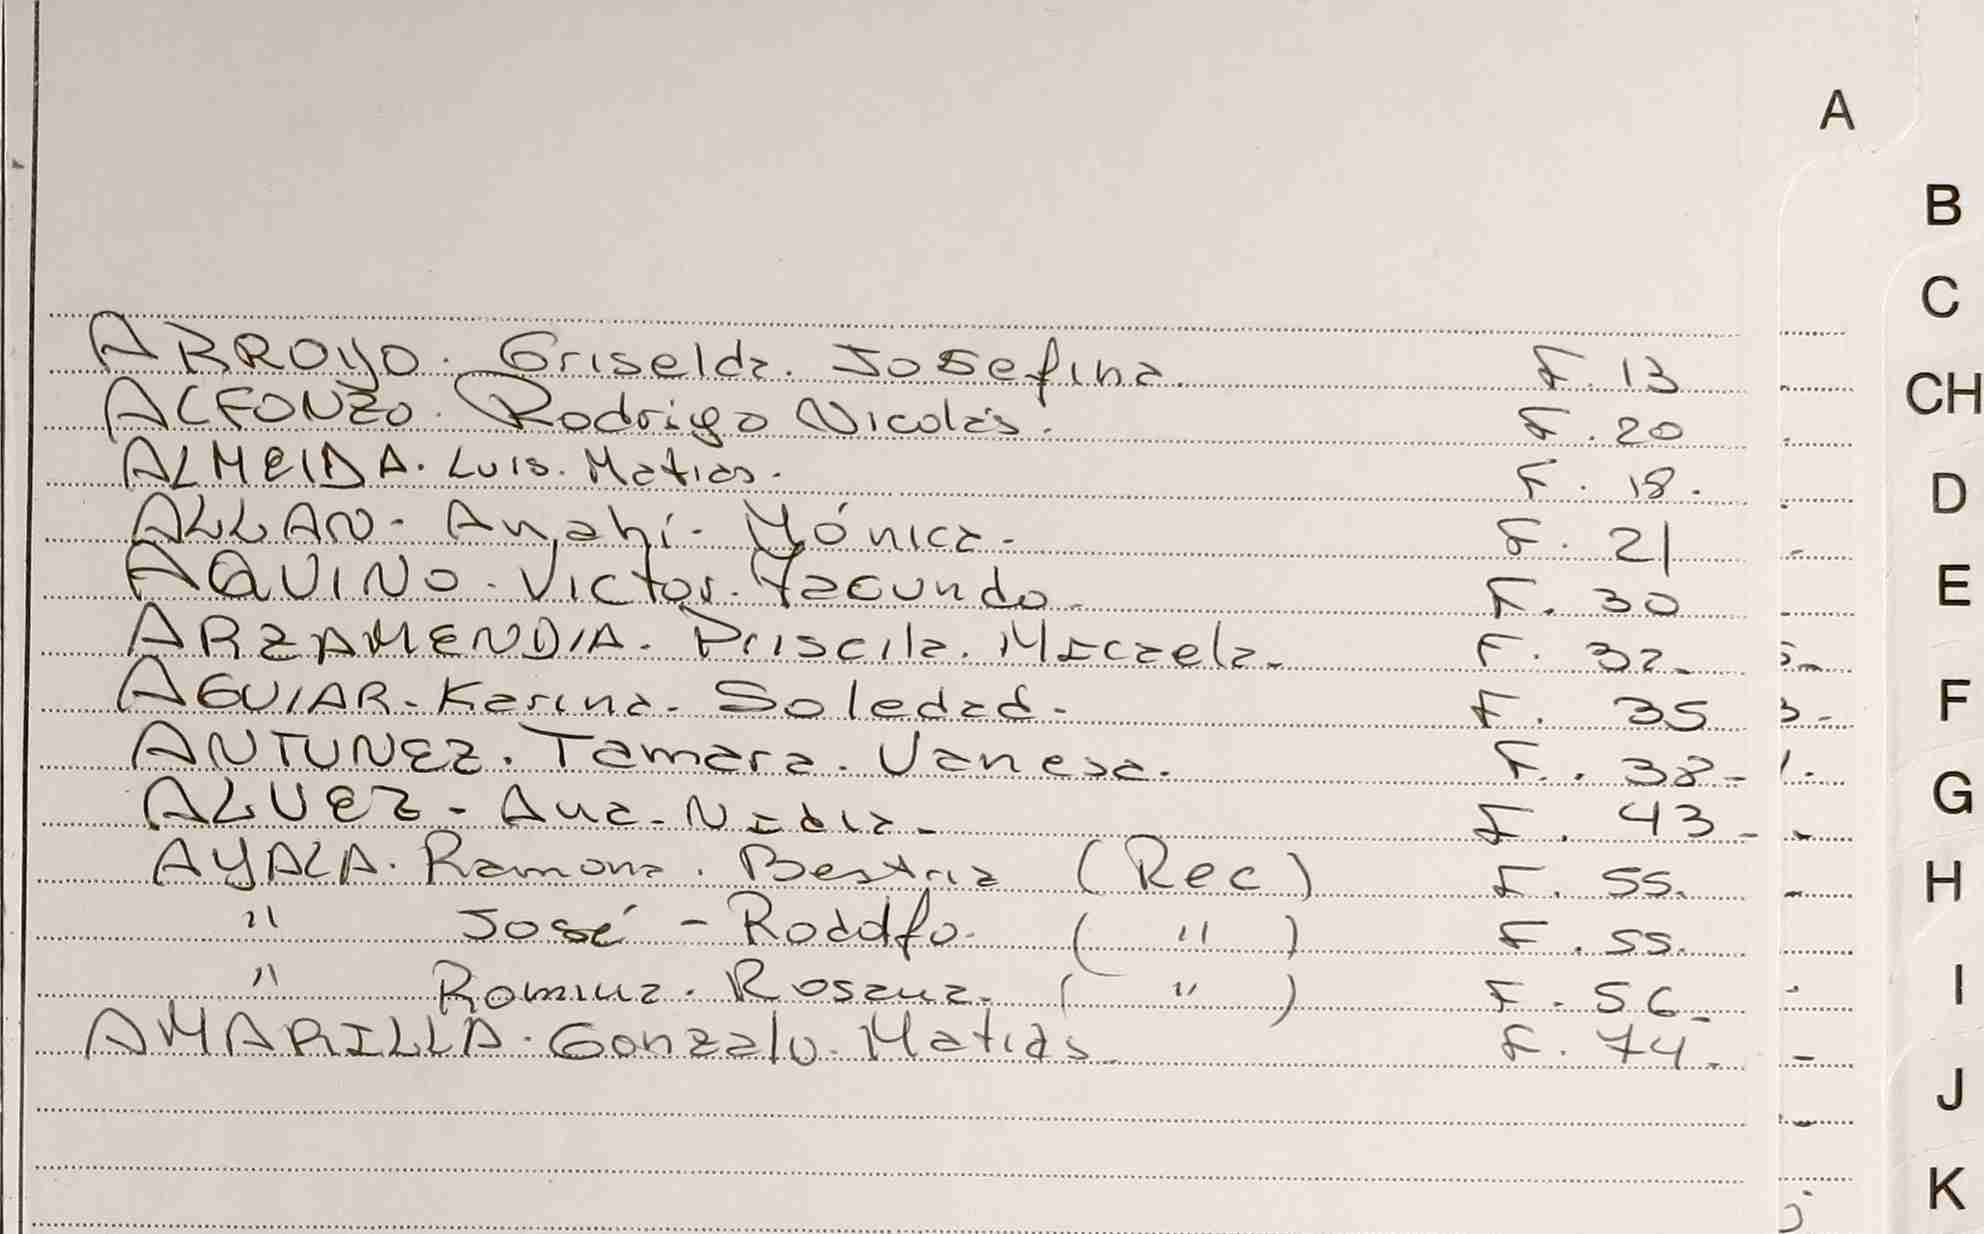 A
B
C
CH
D
E
F
G
H
I
J
K
ARROYO. Griselda. Josefina. F. 13
ALFONZO. Rodrigo Nicolás. F. 20
ALMEIDA. Luis. Matias. F. 18.
ALLAN - Anahí - Mónica. F. 21
AQUINO. Victor. Facundo. F. 30
ARZAMENDIA. Priscila. Micaela. F. 32.
AGUIAR - Karina - Soledad. F. 35
ANTUNEZ. Tamara. Vanesa. F. 38 -
ALVEZ - Ana - Nidia. F. 43 -
AYALA. Ramona. Beatriz (Rec) F. 55.
" José - Rodolfo. ( " ) F. 55.
" Romina. Rosana. ( " ) F. 56 -
AMARILLA. Gonzalo. Matias. F. 74 -